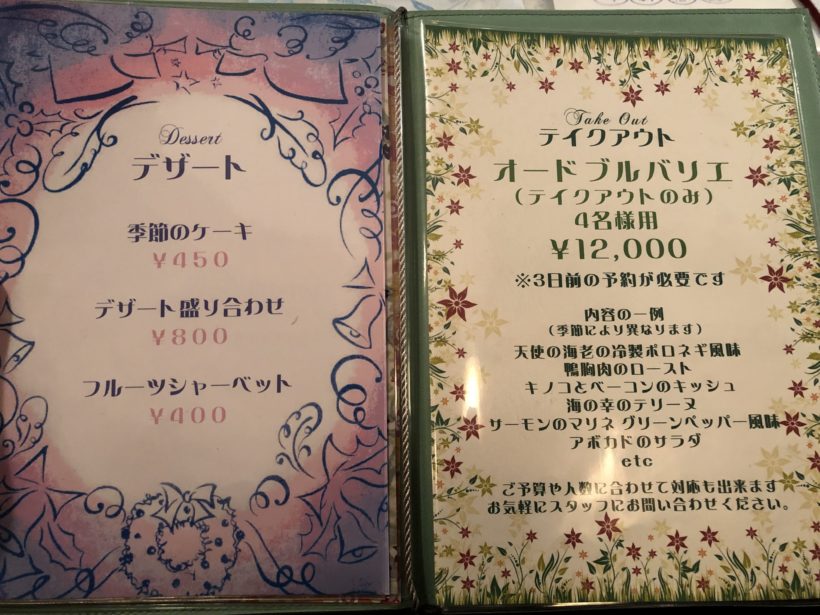 Dessert
デザート
季節のケーキ
￥450
デザート盛り合わせ
￥800
フルーツシャーベット
￥400
Take Out
テイクアウト
オードブルバリエ
(テイクアウトのみ)
4名様用
￥12,000
※3日前の予約が必要です
内容の一例
(季節により異なります)
天使の海老の冷製ポロネギ風味
鴨胸肉のロースト
キノコとベーコンのキッシュ
海の幸のテリーヌ
サーモンのマリネ グリーンペッパー風味
アボカドのサラダ
etc
ご予算や人数に合わせて対応も出来ます
お気軽にスタッフにお問い合わせください。